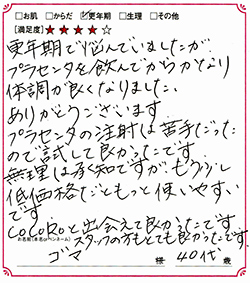 □お肌 □からだ ☑更年期 □生理 □その他
[満足度] ★★★★☆
更年期で悩んでいましたが
プラセンタを飲んでからかなり
体調が良くなりました。
ありがとうございます
プラセンタの注射は苦手だった
ので試して良かったです。
無理は承知ですが、もう少し
低価格だともっと使いやすい
です
COCOROと出会えて良かったです
スタッフの方もとても良かったです
お名前(本名orペンネーム)
ゴマ 様 40代 歳